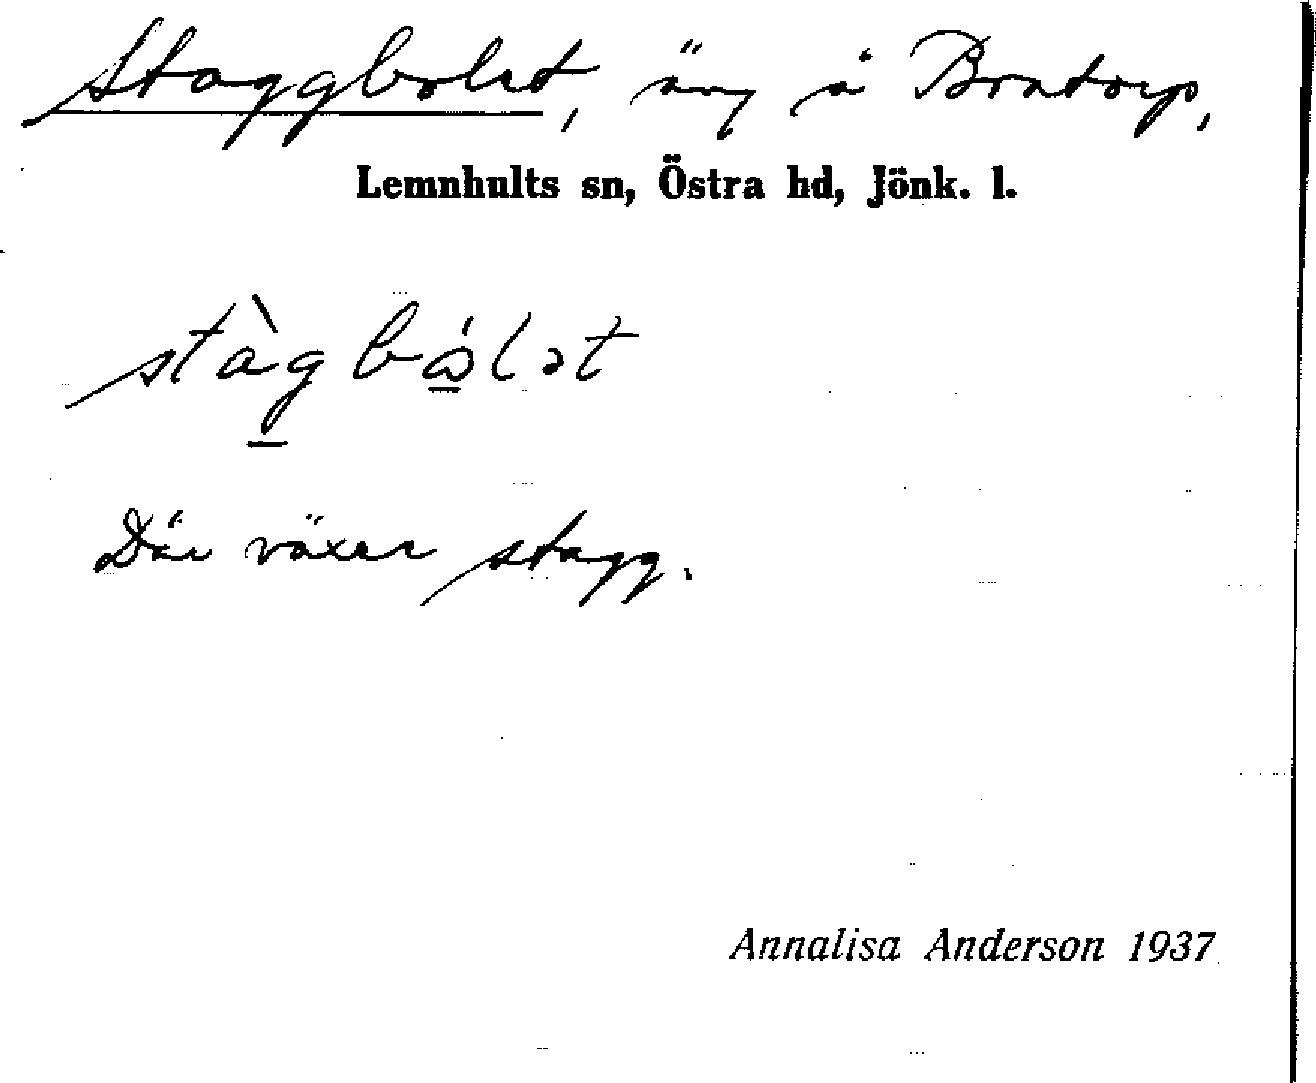 Staggbolet, äng å Bratorp,
Lemnhults sn, Östra hd, Jönk. l.
stàg bólət
Där växer stagg.
Annalisa Anderson 1937